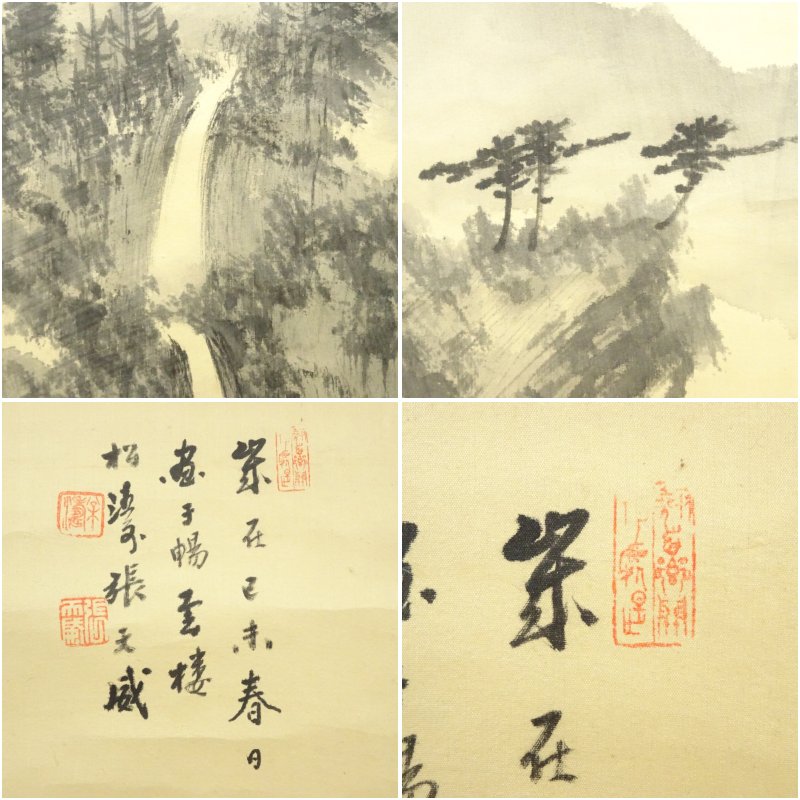 歲在己未春日
畫于暢雲樓
松濤張天威
歲在